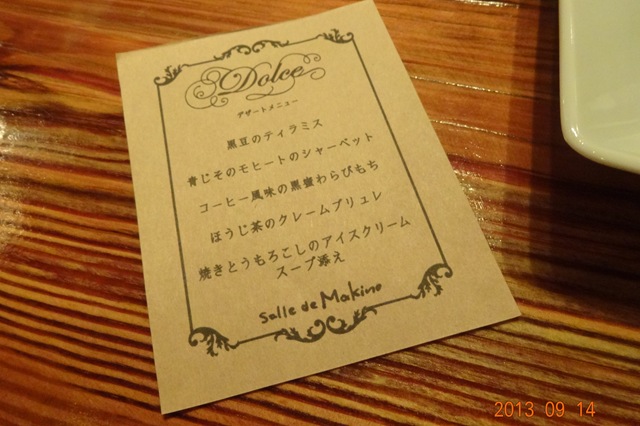 Dolce
デザートメニュー
黒豆のティラミス
青じそのモヒートのシャーベット
コーヒー風味の黒蜜わらびもち
ほうじ茶のクレームブリュレ
焼きとうもろこしのアイスクリーム
スープ添え
Salle de Makino
2013 09 14